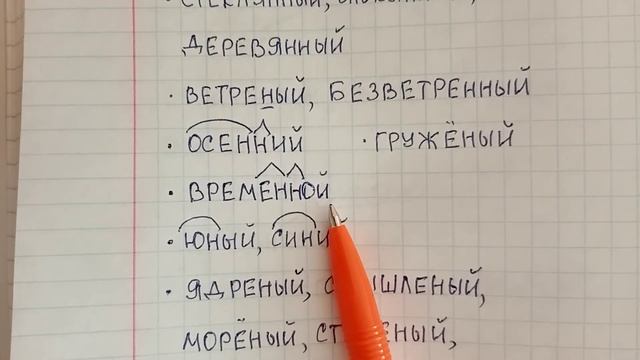 ДЕРЕВЯННЫЙ
· ВЕТРЕНЫЙ, БЕЗВЕТРЕННЫЙ
· ОСЕННИЙ · ГРУЖЁНЫЙ
· ВРЕМЕННОЙ
· ЮНЫЙ,
· ЯДРЕНЫЙ,
МОРЁНЫЙ,